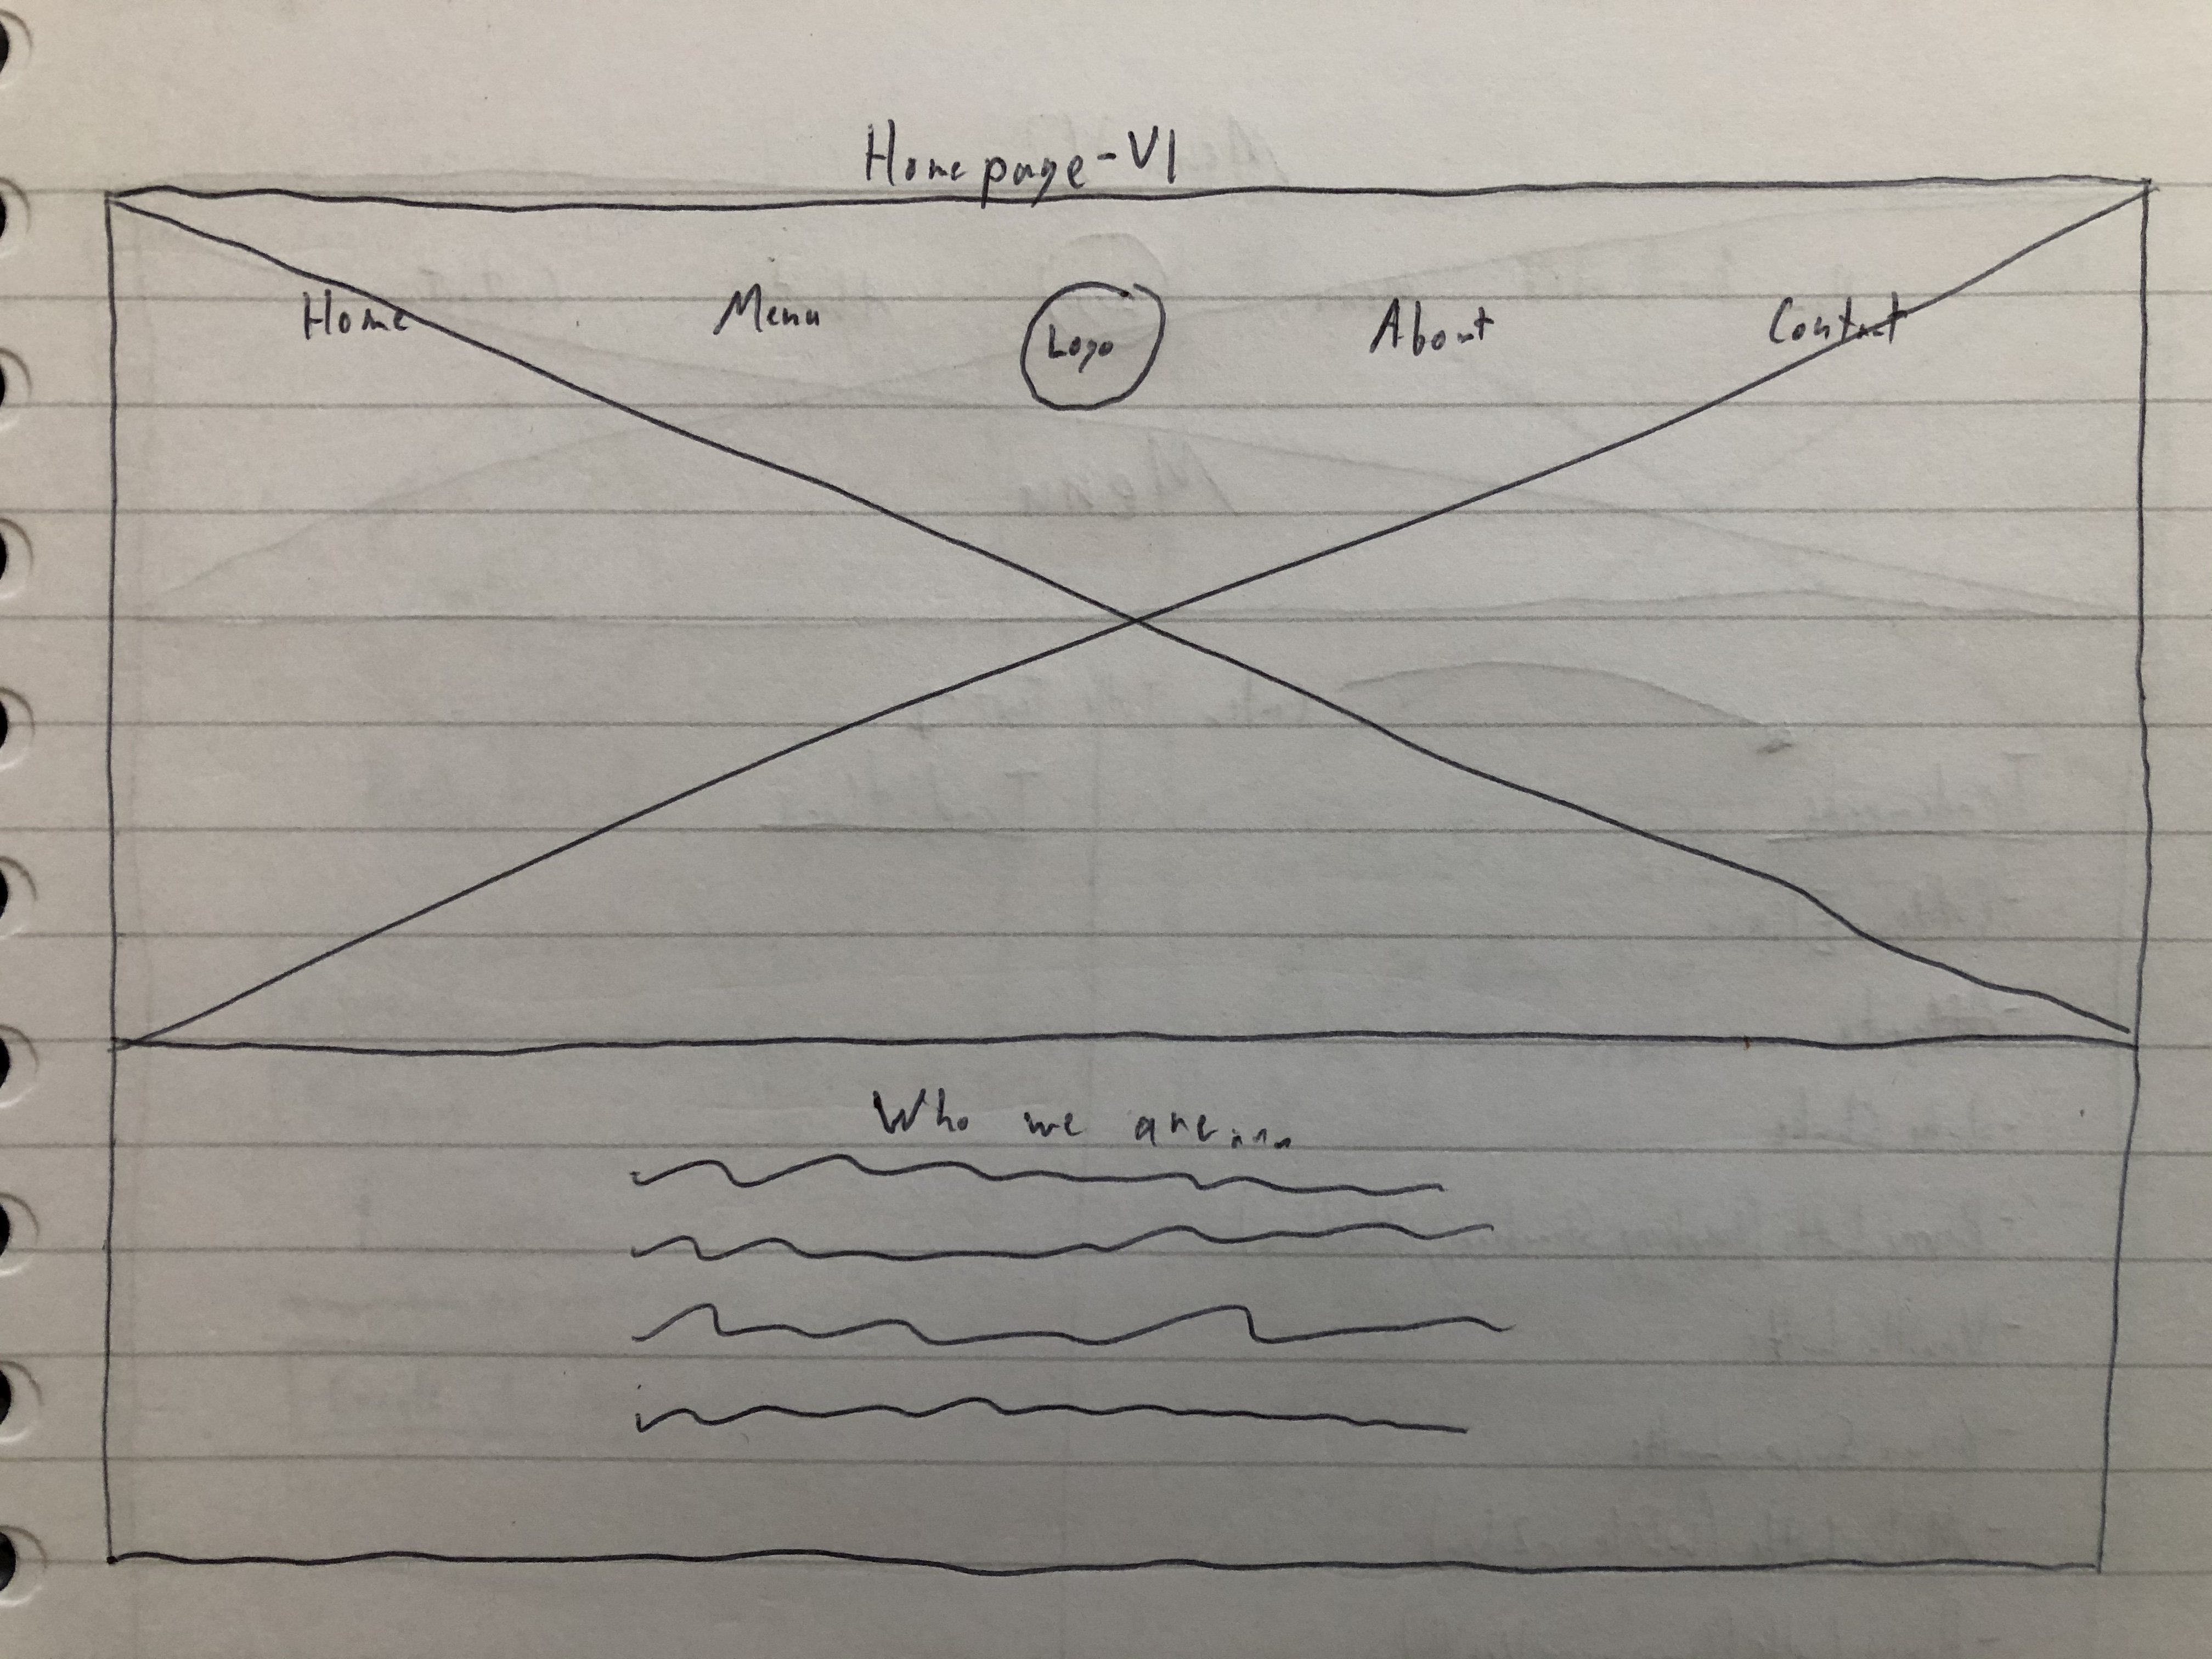 Homepage-V1
Home Menu Logo About Contact
Who we are....